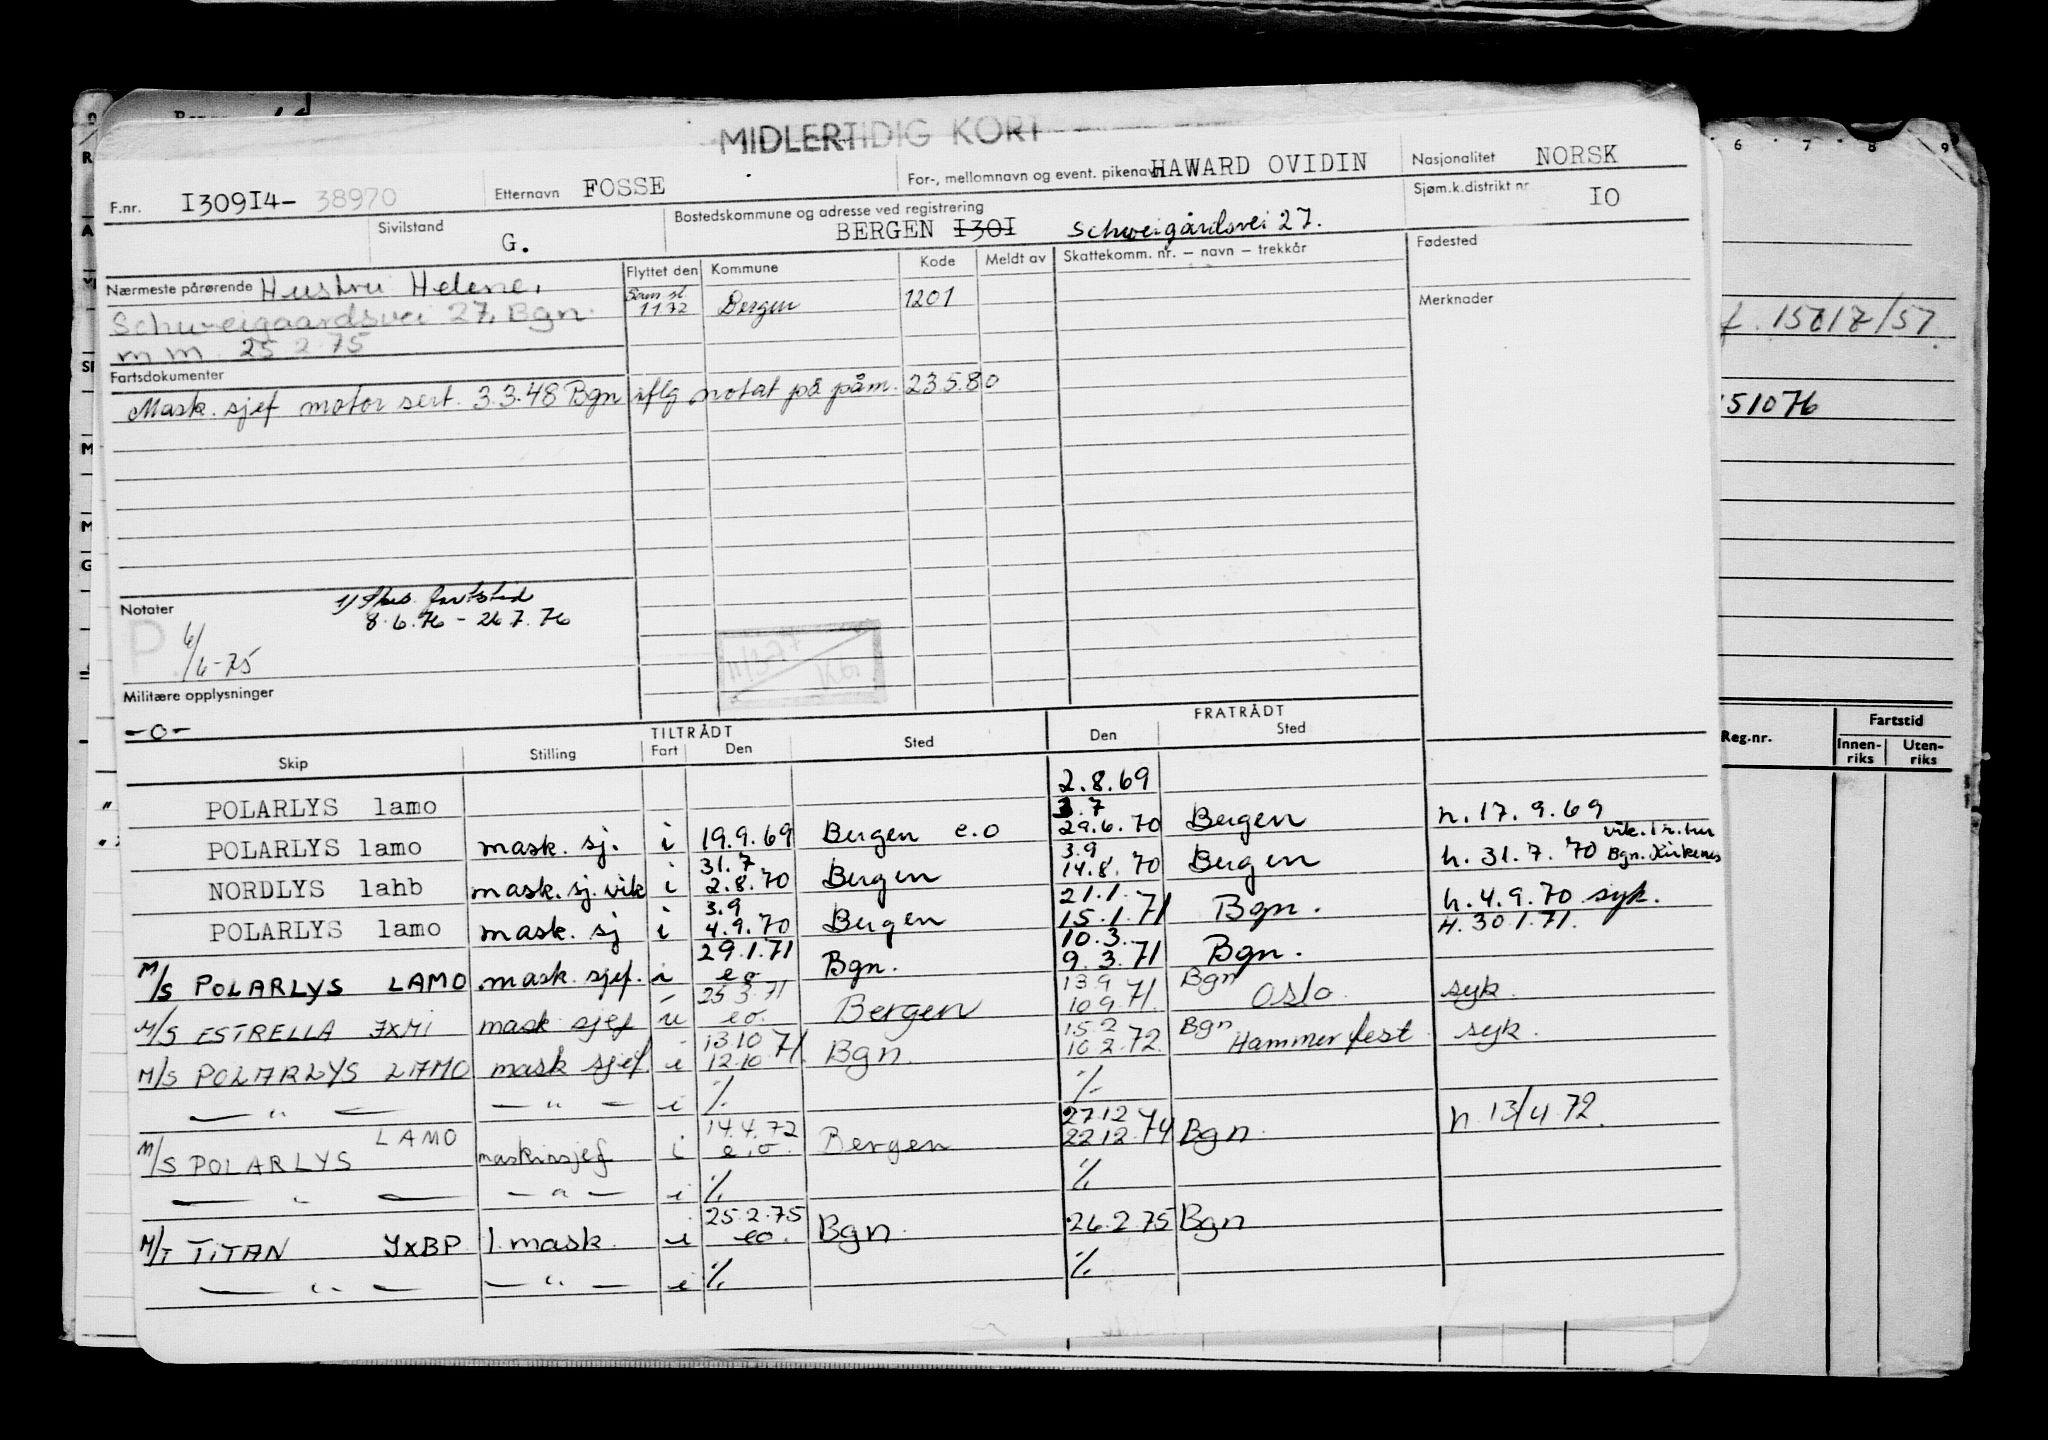 MIDLERTIDIG KORT
F.nr. I309I4- 38970 Etternavn FOSSE For-, mellomnavn og event. pikenavn HAWARD OVIDIN Nasjonalitet NORSK
Sivilstand G. Bostedskommune og adresse ved registrering BERGEN I30I Schweigårdsvei 27. Sjøm.k.distrikt nr IO
Nærmeste pårørende Hustru Helene, Flyttet den Kommune Kode Meldt av Skattekomm. nr. – navn – trekkår Fødested
Schweigaardsvei 27, Bgn. 1172 Bergen 1201 Merknader
m m 25 2 75
Fartsdokumenter
Mask. sjef motor sert. 3.3.48 Bgn iflg notat på påm. 23.5.80
Notater fartstid
8.6.76 - 26.7.76
P 6/6-75
Militære opplysninger
-o-
TILTRÅDT FRATRÅDT
Skip Stilling Fart Den Sted Den Sted
POLARLYS lamo 2.8.69
3.7
POLARLYS lamo mask. sj. i 19.9.69 Bergen e.o 29.6.70 Bergen h. 17.9.69
31.7 3.9
NORDLYS lahb mask. sj. vik i 2.8.70 Bergen 14.8.70 Bergen h. 31.7.70 Bgn. Kirkenes
3.9 21.1.
POLARLYS lamo mask. sj i 4.9.70 Bergen 15.1.71 Bgn. h. 4.9.70 syk.
29.1.71 10.3. H. 30.1.71.
M/S POLARLYS LAMO mask. sjef. i eo Bgn. 9.3.71 Bgn.
25.3.71 13.9 Bgn
M/S ESTRELLA JXMI mask sjef u eo. Bergen 10 9.71. Oslo syk.
13.10 15.2 Bgn
M/S POLARLYS LAMO mask sjef i 12.10.71. Bgn. 10.2.72. Hammerfest syk.
— " — — " — i ./. ./.
14.4.72 27.12
M/S POLARLYS LAMO maskinsjef i e.o. Bergen 22.12.74 Bgn. h. 13/4.72.
— " — — " — i ./. ./.
25.2.75
M/T TITAN JXBP 1. mask. i eo. Bgn. 26.2.75 Bgn
— " — — " — i ./. ./.
6 7 8 9
151076
Reg.nr. Fartstid
Innen-riks Uten-riks